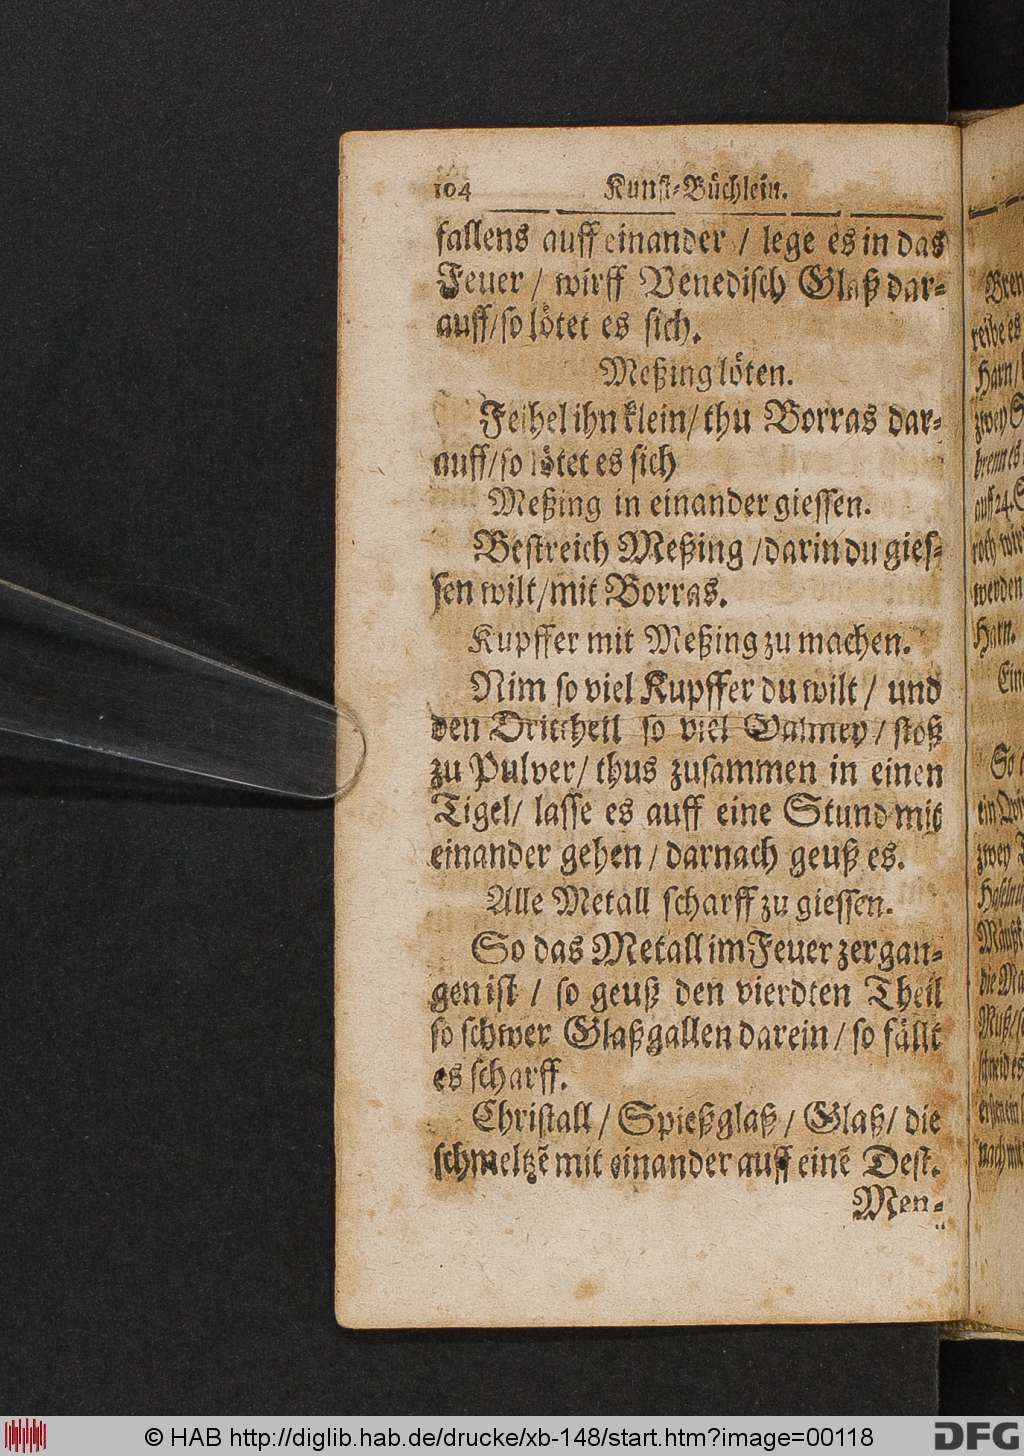 104 Kunst-Büchlein.
fallens auff einander / lege es in das
Feuer / wirff Venedisch Glaß dar-
auff/so lötet es sich.
Meßing löten.
Feihel ihn klein/ thu Borras dar-
auff/so lötet es sich
Meßing in einander giessen.
Bestreich Meßing /darin du gies-
sen wilt/mit Borras.
Kupffer mit Meßing zu machen.
Nim so viel Kupffer du wilt / und
den Drittheil so viel Galmey / stoß
zu Pulver/ thus zusammen in einen
Tigel/ lasse es auff eine Stund mit
einander gehen / darnach geuß es.
Alle Metall scharff zu giessen.
So das Metall im Feuer zergan-
gen ist / so geuß den vierdten Theil
so schwer Glaßgallen darein / so fällt
es scharff.
Christall / Spießglaß / Glaß/ die
schmeltzẽ mit einander auff einẽ Test.
Men-
Bren
reibe es
Harn /
zwey S
brenn es
auff 24. S
roth wie
werden
Harn.
Ein
So
ein
zwey
die Ma
Muß/s
schneid es
nach mit
© HAB http://diglib.hab.de/drucke/xb-148/start.htm?image=00118
DFG